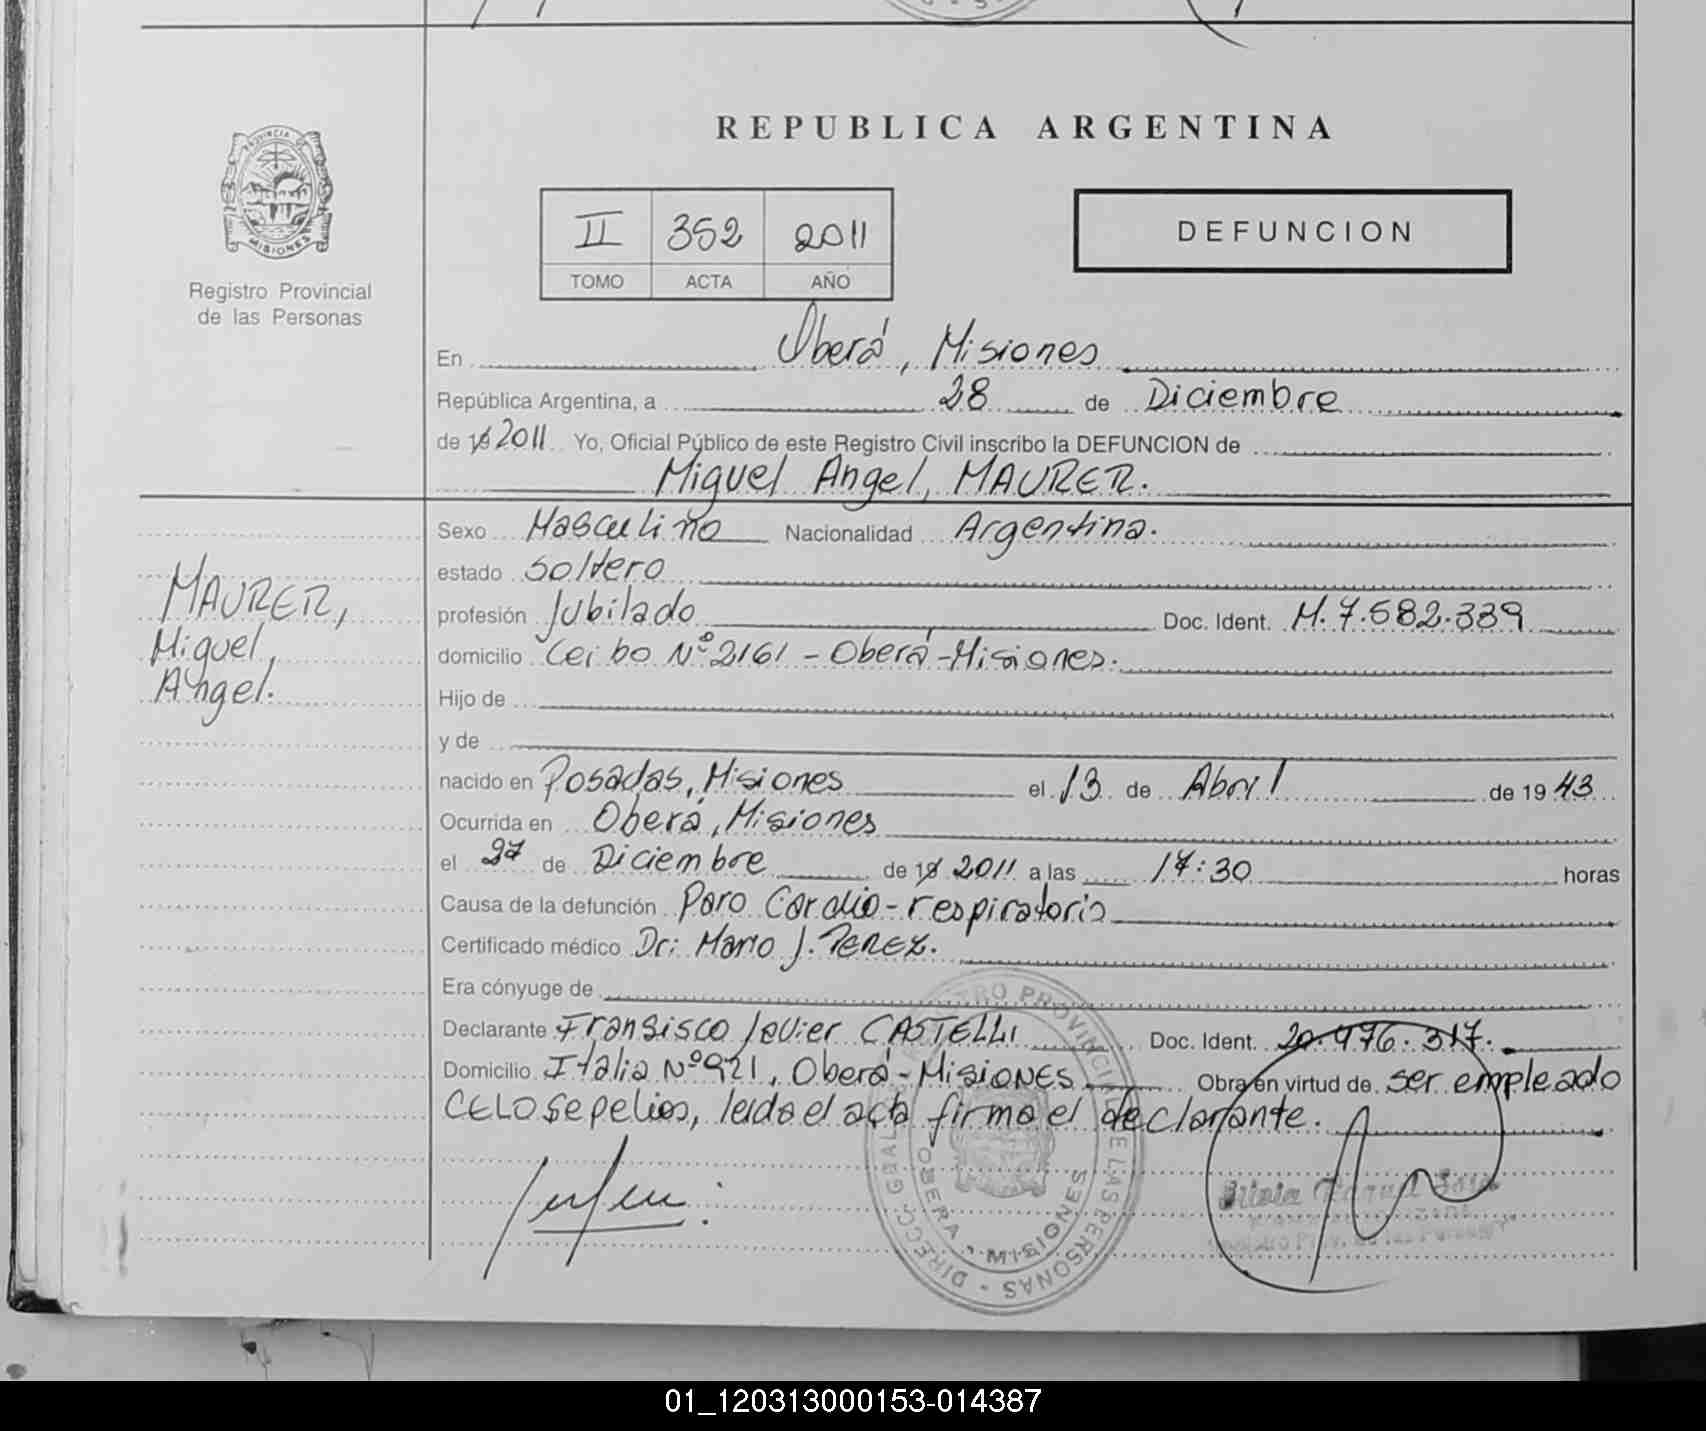 REPUBLICA ARGENTINA
PROVINCIA DE
MISIONES
Registro Provincial
de las Personas
II 352 2011
TOMO ACTA AÑO
DEFUNCION
En Oberá, Misiones
República Argentina, a 28 de Diciembre
de 19 2011 Yo, Oficial Público de este Registro Civil inscribo la DEFUNCION de
Miguel Angel, MAURER.
MAURER,
Miguel,
Angel.
Sexo Masculino Nacionalidad Argentina.
estado soltero
profesión Jubilado Doc. Ident. M. 7.582.339
domicilio Ceibo Nº 2161 - Oberá - Misiones.
Hijo de
y de
nacido en Posadas, Misiones el 13 de Abril de 19 43
Ocurrida en Oberá, Misiones
el 27 de Diciembre de 19 2011 a las 17:30 horas
Causa de la defunción Paro Cardio-respiratorio
Certificado médico Dr: Mario J. PEREZ.
Era cónyuge de
Declarante Fransisco Javier CASTELLI Doc. Ident. 20.476.317.
Domicilio Italia Nº 921, Oberá - MisioNES Obra en virtud de ser empleado
CELO Sepelios, leida el acta firma el declarante.
DIRECC. GRAL. REGISTRO PROVINCIAL DE LAS PERSONAS
OBERA - MISIONES
01_120313000153-014387